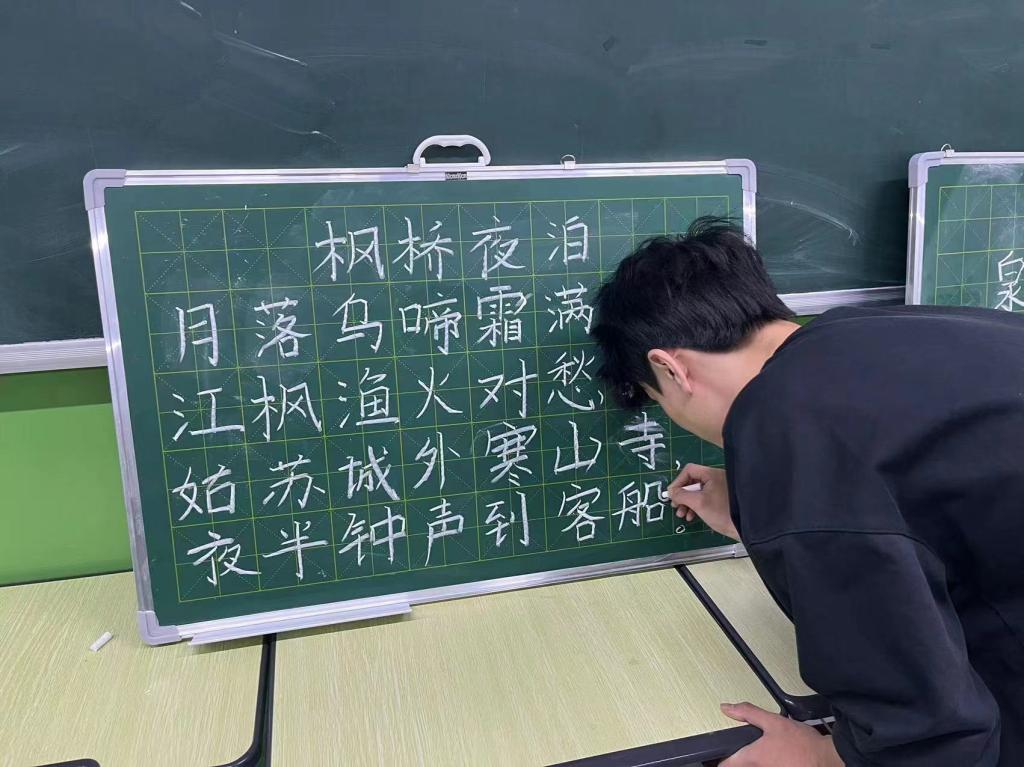 枫桥夜泊
月落乌啼霜满
江枫渔火对愁
姑苏城外寒山寺,
夜半钟声到客船。
泉